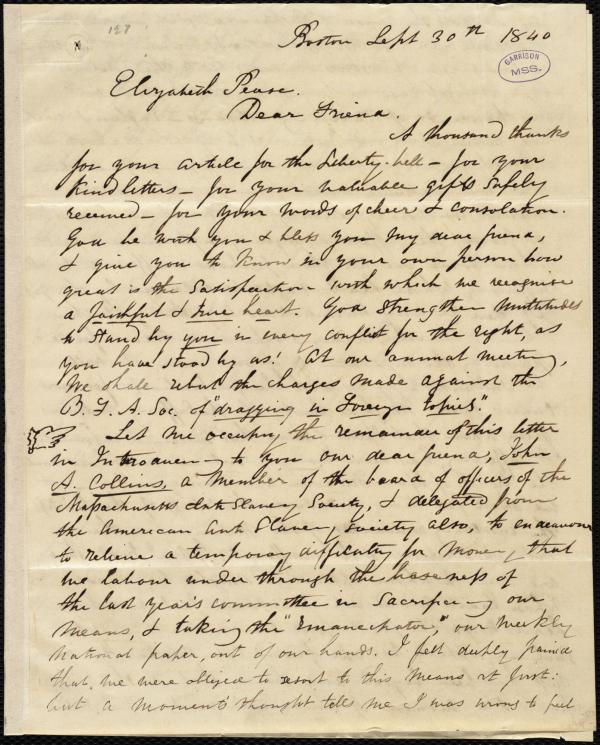 128
Boston Sept 30th 1840
GARRISON
MSS.
Elizabeth Pease.
Dear Friend.
A thousand thanks
for your article for the Liberty-bell - for your
kind letters - for your valuable gifts safely
received - for your words of cheer & consolation.
God be with you & bless you my dear friend,
& give you to know in your own person how
great is the satisfaction with which we recognise
a faithful & true heart. God strengthen multitudes
to stand by you in every conflict for the right, as
you have stood by us! At our annual meeting,
we shall rebut the charges made against the
B. F. A. Soc. of "dragging in Foreign topics".
Let me occupy the remainder of this letter
in Introducing to you our dear friend, John
A. Collins, a member of the board of officers of the
Massachusetts Anti Slavery Society, & delegated from
the American Anti Slavery society also, to endeavour
to relieve a temporary difficulty for money, that
we labour under through the baseness of
the last year's committee in Sacrificing our
means, & taking the "Emancipator," our weekly
national paper, out of our hands. I felt deeply pained
that we were obliged to resort to this means at first:
but a moment's thought tells me I was wrong to feel